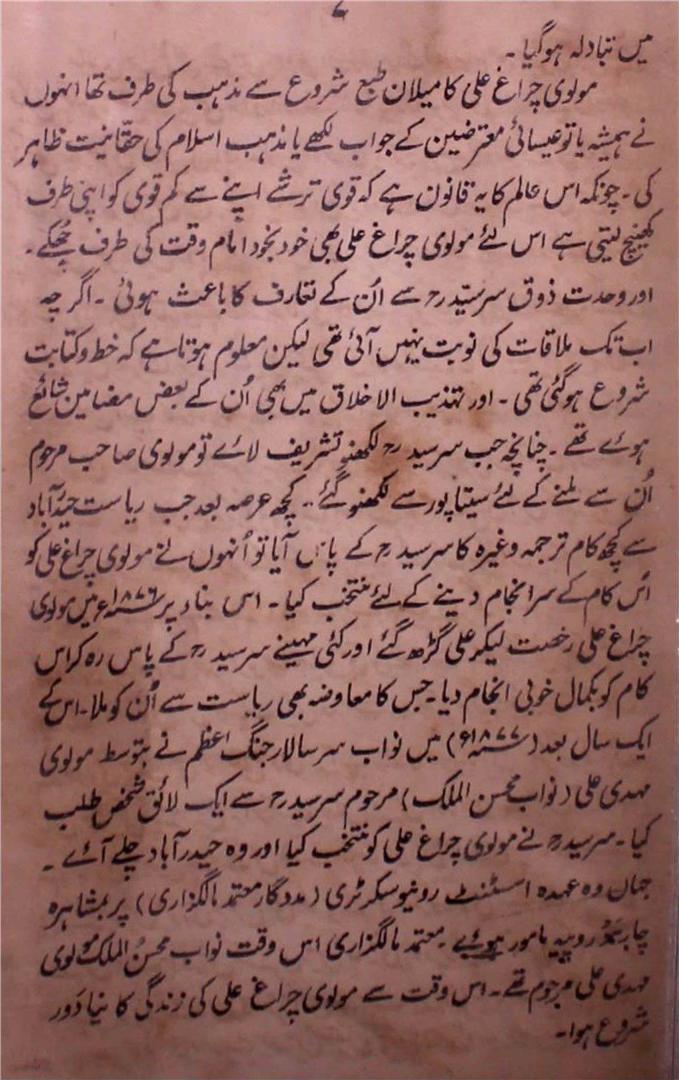 ۷
میں تبادلہ ہوگیا۔
مولوی چراغ علی کا میلان طبع شروع سے مذہب کی طرف تھا انہوں
نے ہمیشہ یا تو عیسائی معترضین کے جواب لکھے یا مذہب اسلام کی حقانیت ظاہر
کی۔ چونکہ اس عالم کا یہ قانون ہے کہ قوی تر شے اپنے سے کم قوی کو اپنی طرف
کھینچ لیتی ہے اس لئے مولوی چراغ علی بھی خود بخود امام وقت کی طرف جھکے۔
اور وحدت ذوق سرسیّد رح سے اُن کے تعارف کا باعث ہوئی۔ اگر چہ
اب تک ملاقات کی نوبت نہیں آئی تھی لیکن معلوم ہوتا ہے کہ خط و کتابت
شروع ہوگئی تھی۔ اور تہذیب الاخلاق میں بھی اُن کے بعض مضامین شائع
ہوئے تھے۔ چنانچہ جب سرسید رح لکھنؤ تشریف لائے تو مولوی صاحب مرحوم
اُن سے ملنے کے لئے سیتاپور سے لکھنؤ گئے۔ کچھ عرصہ بعد جب ریاست حیدرآباد
سے کچھ کام ترجمہ وغیرہ کا سرسید رح کے پاس آیا تو اُنہوں نے مولوی چراغ علی کو
اُس کام کے سرانجام دینے کے لئے منتخب کیا۔ اس بناء پر ۱۸۷۶ء میں مولوی
چراغ علی رخصت لیکر علی گڑھ گئے اور کئی مہینے سرسید رح کے پاس رہ کر اس
کام کو بکمال خوبی انجام دیا۔ جس کا معاوضہ بھی ریاست سے اُن کو ملا۔ اس کے
ایک سال بعد (۱۸۷۷ء) میں نواب سر سالار جنگ اعظم نے بتوسط مولوی
مہدی علی (نواب محسن الملک) مرحوم سرسید رح سے ایک لائق شخص طلب
کیا۔ سرسید رح نے مولوی چراغ علی کو منتخب کیا اور وہ حیدرآباد چلے آئے۔
جہاں وہ عہدہ اسسٹنٹ رونیو سکرٹری (مددگار معتمد مالگزاری) پر بمشاہرہ
چار سو روپیہ مامور ہوئے۔ معتمد مالگزاری اس وقت نواب محسن الملک مولوی
مہدی علی مرحوم تھے۔ اس وقت سے مولوی چراغ علی کی زندگی کا نیا دَور
شروع ہوا۔